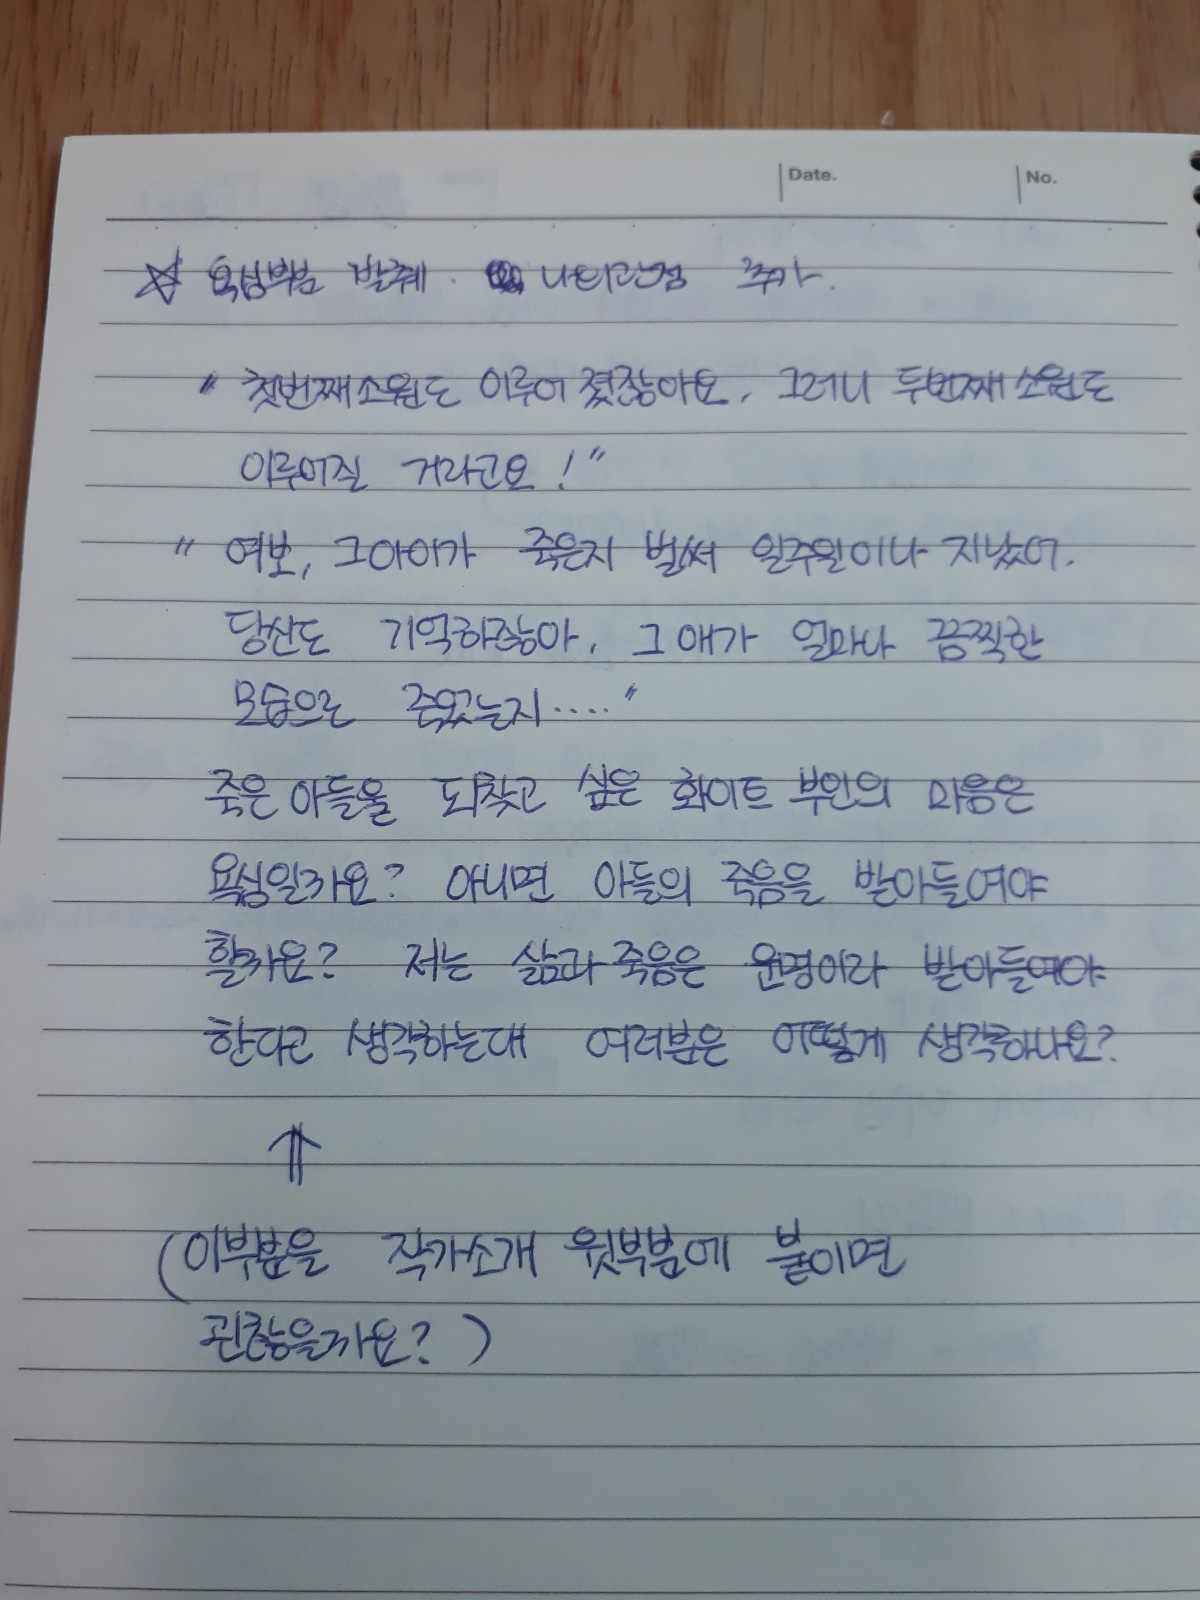 Date. No.
☆ 욕심부분 발췌. 나의관점 추가.
" 첫번째소원도 이루어 졌잖아요. 그러니 두번째소원도
이루어질 거라고요! "
" 여보, 그아이가 죽은지 벌써 일주일이나 지났어.
당신도 기억하잖아. 그 애가 얼마나 끔찍한
모습으로 죽었는지 ···· "
죽은 아들을 되찾고 싶은 화이트 부인의 마음은
욕심일까요? 아니면 아들의 죽음을 받아들여야
할까요? 저는 삶과 죽음은 운명이라 받아들여야
한다고 생각하는대 여러분은 어떻게 생각하나요?
⇑
(이부분을 작가소개 윗부분에 붙이면
괜찮을까요? )